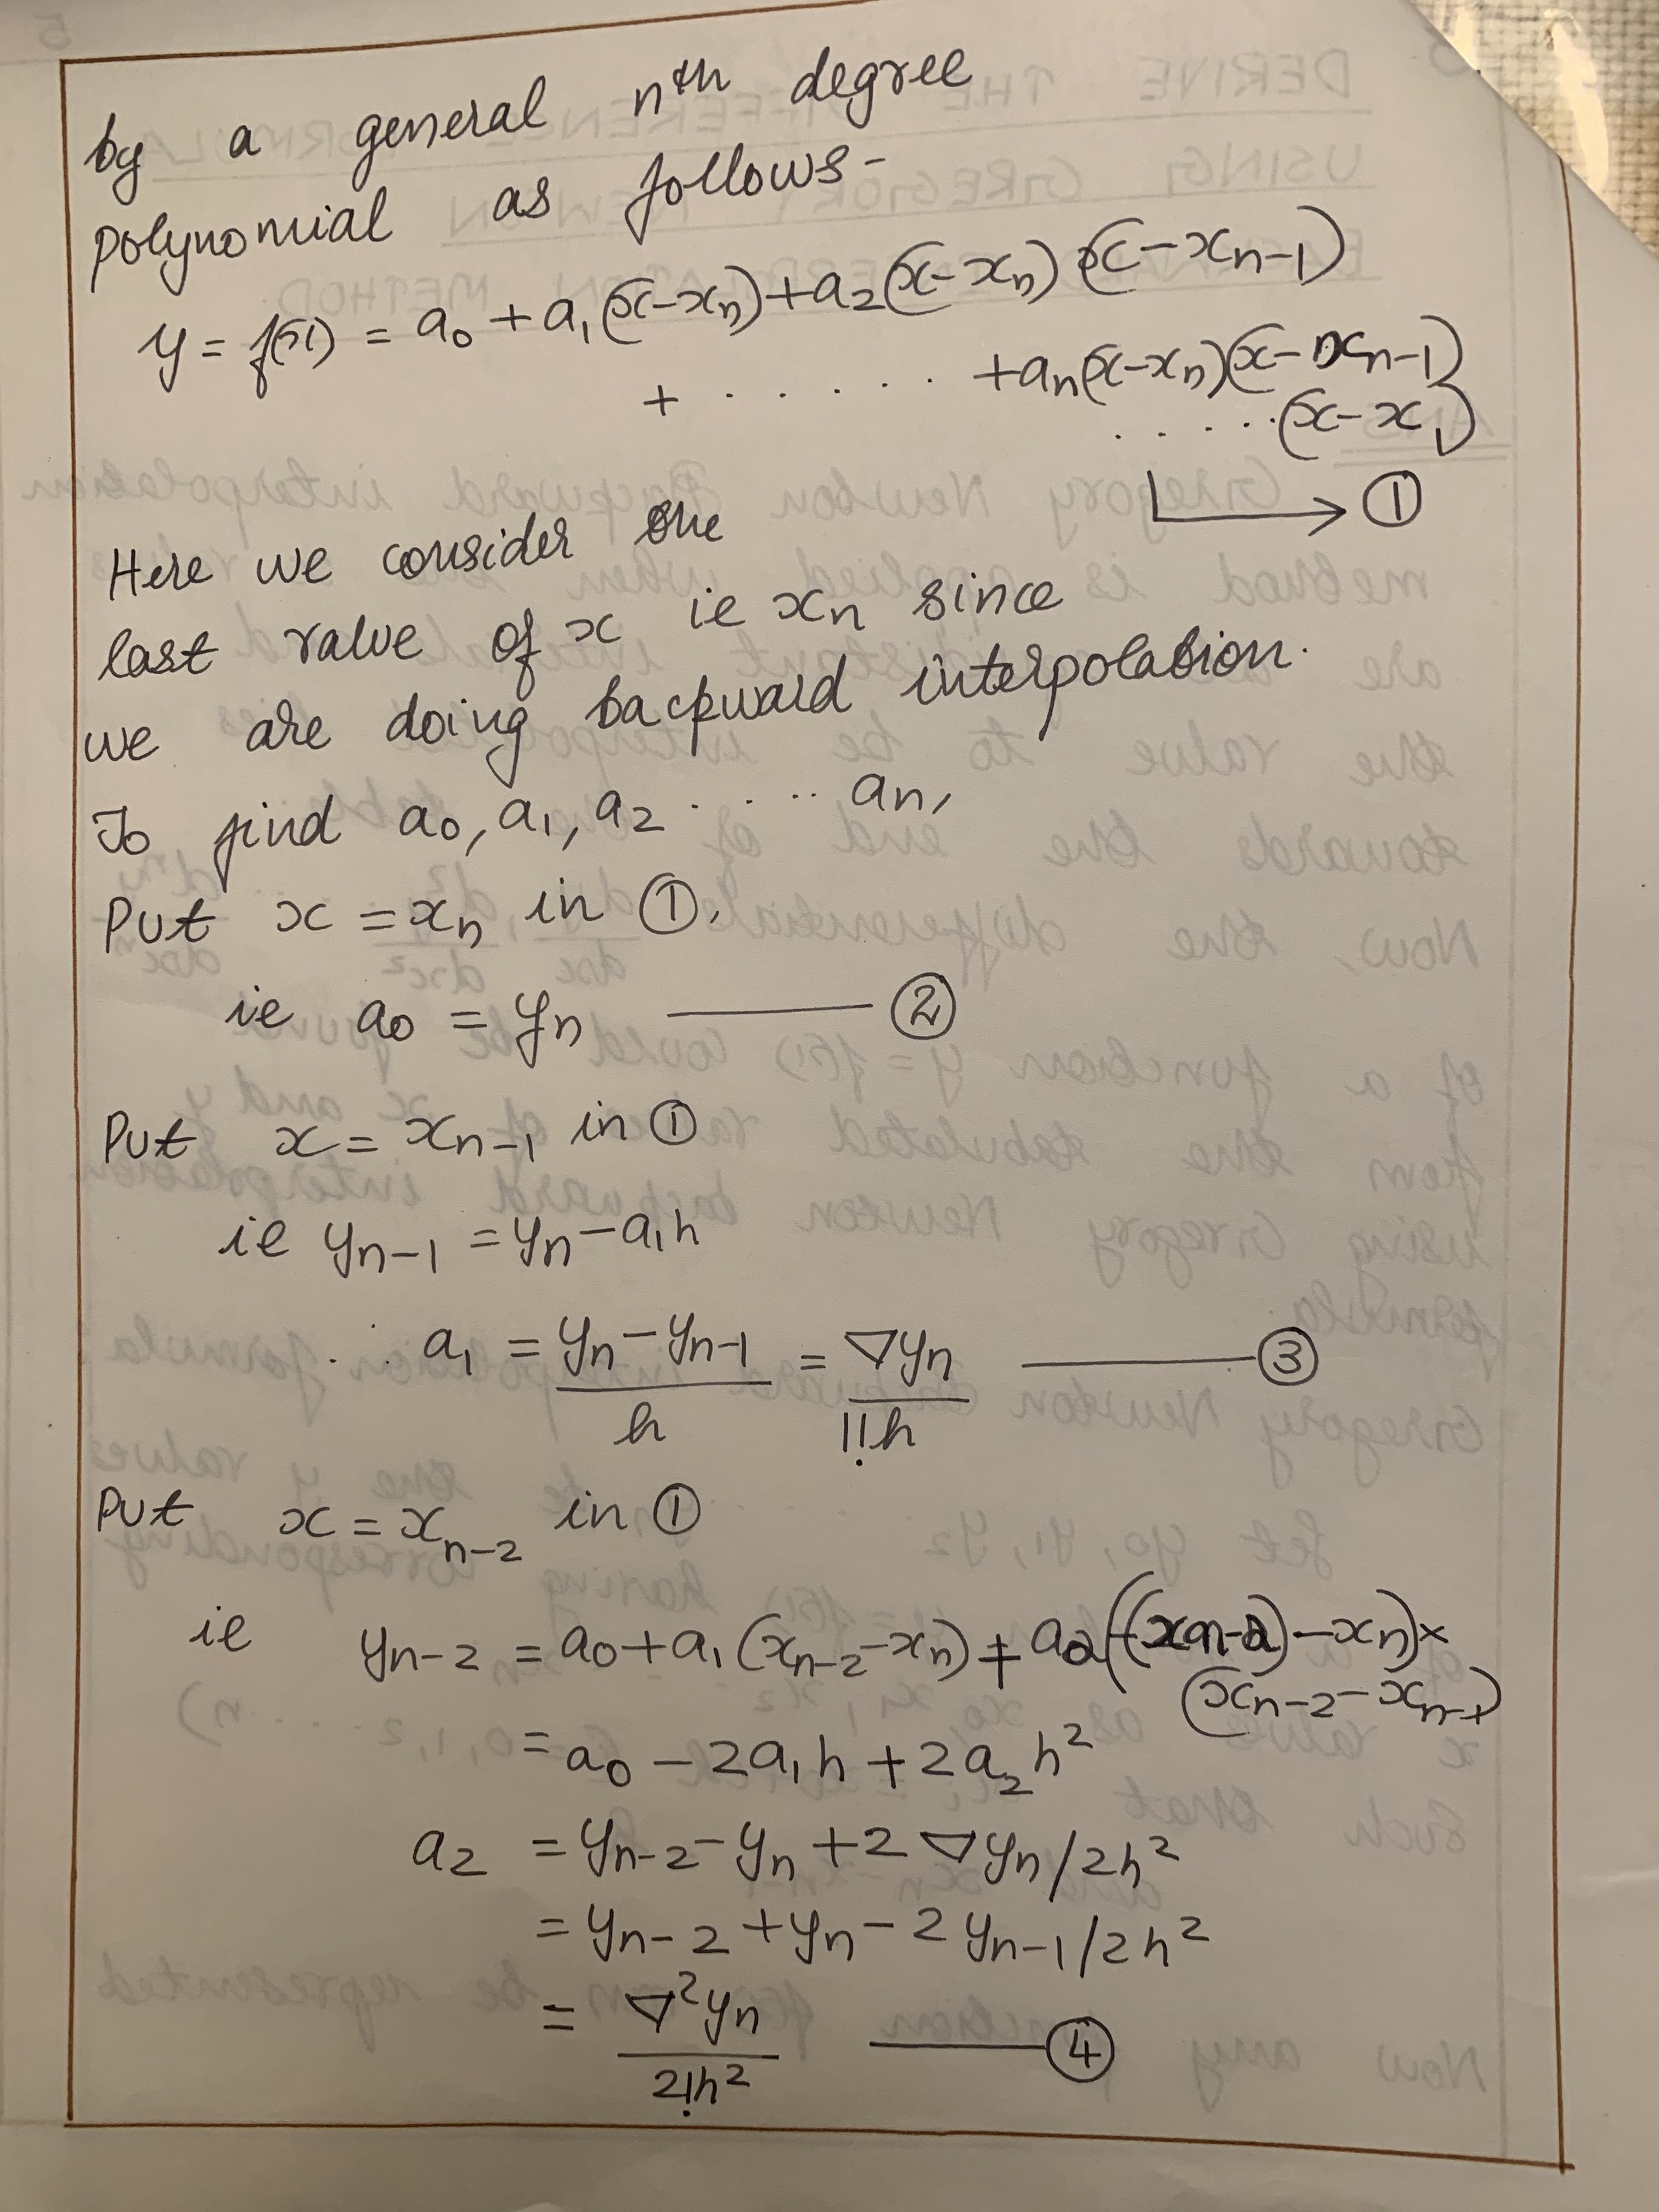 by a general nth degree
polynomial as follows-
y = f(x) = a0 + a1(x-xn)+a2(x-xn)(x-xn-1)
+ . . . . . +an(x-xn)(x-xn-1)
. . . . .(x-x1)
→ ①
Here we consider the
last value of x ie xn since
we are doing backward interpolation.
To find a0, a1, a2 . . . . an,
Put x = xn in ①.
ie a0 = yn —— ②
Put x = xn-1 in ①
ie yn-1 = yn - a1h
∴ a1 = yn - yn-1 / h = ∇yn / 1!h —— ③
Put x = xn-2 in ①
ie yn-2 = a0 + a1(xn-2 - xn) + a2((xn-2) - xn)×
(xn-2 - xn-1)
= a0 - 2a1h + 2a2h²
a2 = yn-2 - yn + 2∇yn/2h²
= yn-2 + yn - 2yn-1/2h²
= ∇²yn / 2!h² —— ④